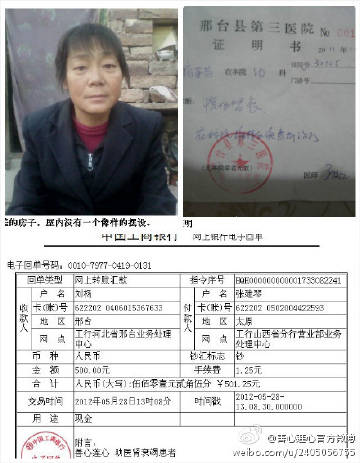 邢台县第三医院
证明书
№ 001
2011
30205
在本院
科
门诊号
医师
兹的房子。屋内没有一个像样的摆设。
明
中国工商银行 网上银行电子回单
电子回单号码：0010-7977-0419-0131
回单类型 网上转账汇款 指令序号 BQH000000000001733082241
收款人 户名 刘杨 付款人 户名 张建琴
卡(账)号 622202 0406015367633 卡(账)号 622202 0502004422593
地区 邢台 地区 太原
网点 工行河北省邢台业务处理中心 网点 工行山西省分行营业部业务处理中心
币种 人民币 钞汇标志 钞
金额 500.00元 手续费 1.25元
合计 人民币(大写)：伍佰零壹元贰角伍分 ￥501.25元
交易时间 2012年05月28日13时08分 时间戳 2012-05-28-13.08.30.000000
用途 现金
附言：
善心莲心 助医肾衰竭患者
@善心莲心官方微博
weibo.com/u/2405056755